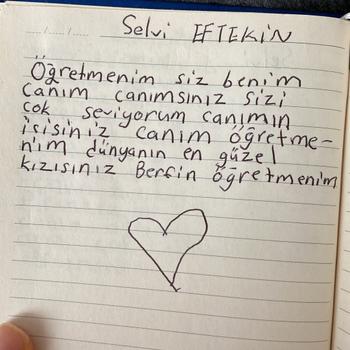 Selvi EFTEKİN
Öğretmenim siz benim
canım canımsınız sizi
çok seviyorum canımın
içisiniz canım öğretme-
nim dünyanın en güzel
kızısınız Berfin öğretmenim